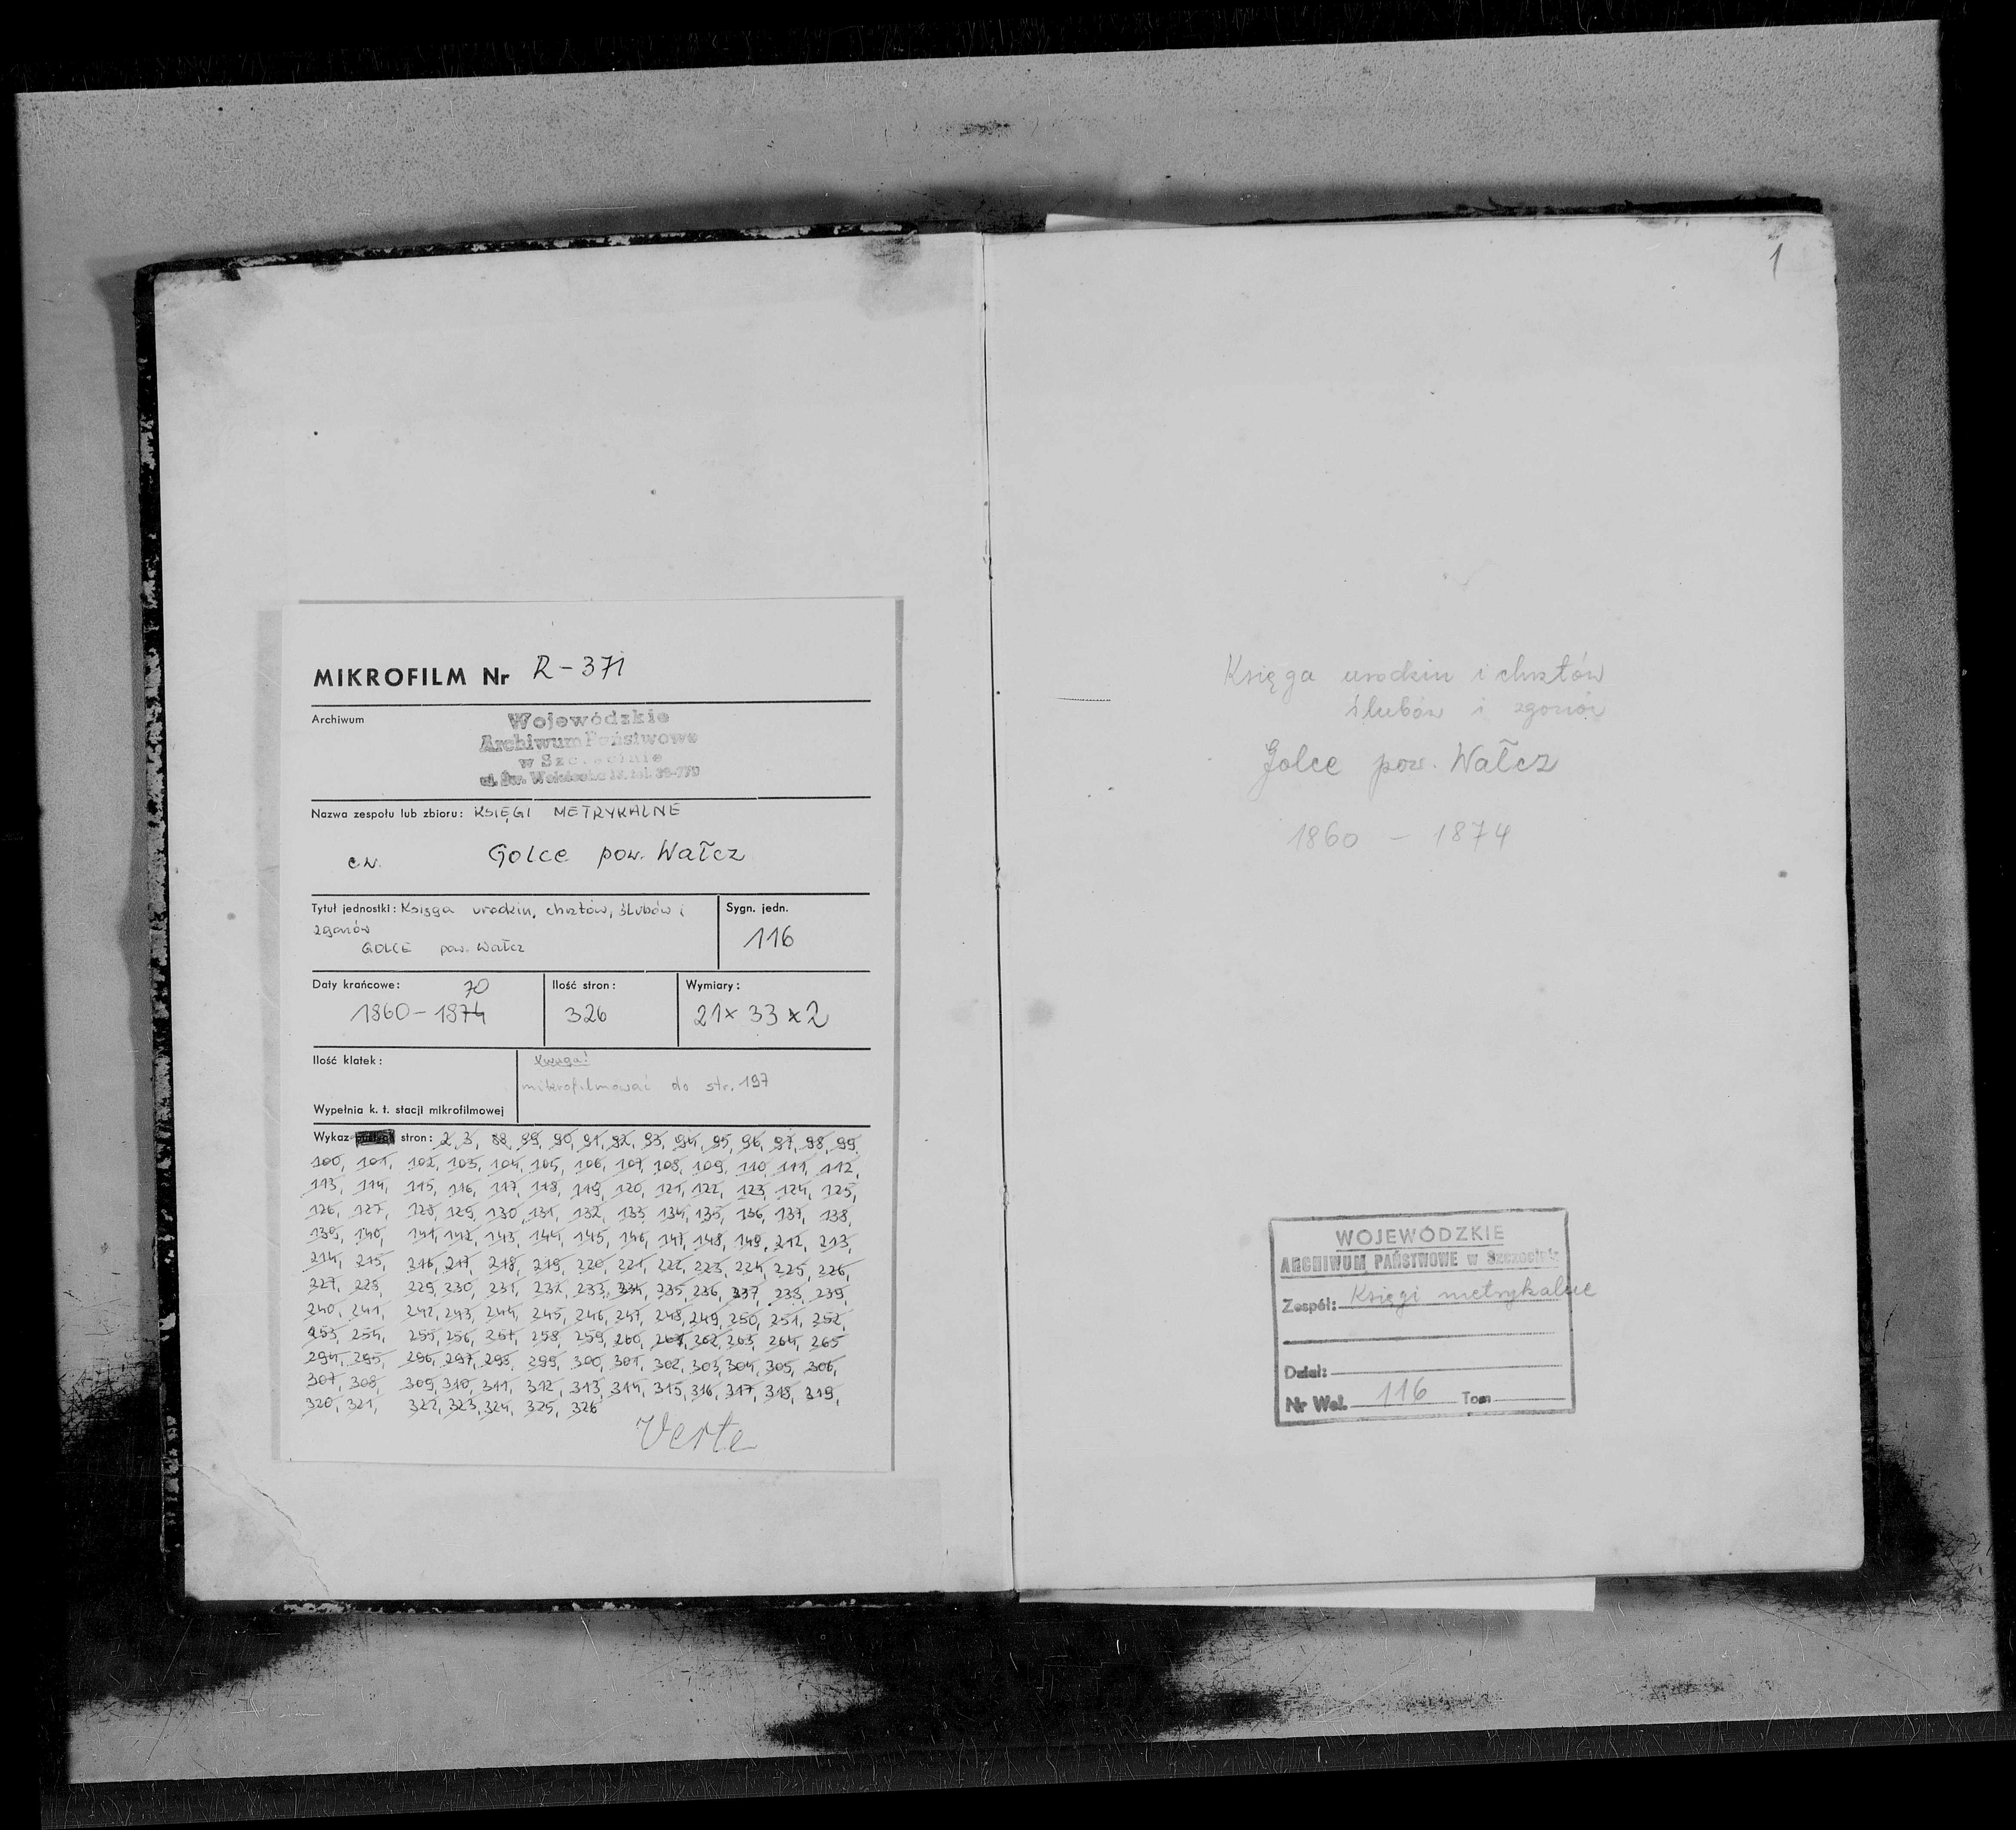 MIKROFILM Nr R-371
Archiwum
Wojewódzkie
Archiwum Państwowe
w Szczecinie
Nazwa zespołu lub zbioru: KSIĘGI METRYKALNE
ew. Golce pow. Wałcz
Tytuł jednostki: Księga urodzin, chrztów, ślubów i
zgonów
GOLCE pow. Wałcz
Sygn. jedn.
116
Daty krańcowe: 70
1860-1874
Ilość stron:
326
Wymiary:
21 x 33 x 2
Ilość klatek:
Wypełnia k. t. stacji mikrofilmowej
Uwaga!
mikrofilmować do str. 197
Wykaz stron: 2, 3, 88, 89, 90, 91, 92, 93, 94, 95, 96, 97, 98, 99,
100, 101, 102, 103, 104, 105, 106, 107, 108, 109, 110, 111, 112,
113, 114, 115, 116, 117, 118, 119, 120, 121, 122, 123, 124, 125,
126, 127, 128, 129, 130, 131, 132, 133, 134, 135, 136, 137, 138,
139, 140, 141, 142, 143, 144, 145, 146, 147, 148, 149, 212, 213,
214, 215, 216, 217, 218, 219, 220, 221, 222, 223, 224, 225, 226,
227, 228, 229, 230, 231, 232, 233, 234, 235, 236, 237, 238, 239,
240, 241, 242, 243, 244, 245, 246, 247, 248, 249, 250, 251, 252,
253, 254, 255, 256, 257, 258, 259, 260, 261, 262, 263, 264, 265
294, 295, 296, 297, 298, 299, 300, 301, 302, 303, 304, 305, 306,
307, 308, 309, 310, 311, 312, 313, 314, 315, 316, 317, 318, 319,
320, 321, 322, 323, 324, 325, 326
Verte
1
Księga urodzin i chrztów
ślubów i zgonów
Golce pow. Wałcz
1860 - 1874
WOJEWÓDZKIE
ARCHIWUM PAŃSTWOWE w Szczecinie
Zespół: Księgi metrykalne
Dział:
Nr Wol. 116 Tom